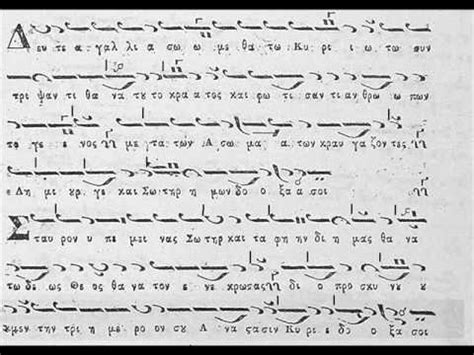 Δευ τε α γαλ λι α σω ω με θα τω Κυ ρι ι ω τω συν
τρι ψαν τι θα να του το κρα α τος και φω τι σαν τι αν θρω ω πων
το γε ε νος με τα των Α σω μα α των κραυ γα ζον τες
Δη μι ουρ γε και Σω τηρ η μων δο ο ξα α σοι
Σταυ ρον υ πε μει νας Σω τηρ και τα φην δι η μας θα να
τω δε ως Θε ος θα να τον ε νε κρω σας δι ο προ σκυ νου ου
μεν την τρι η με ρον σου Α να στα σιν Κυ ρι ε δο ο ξα σοι